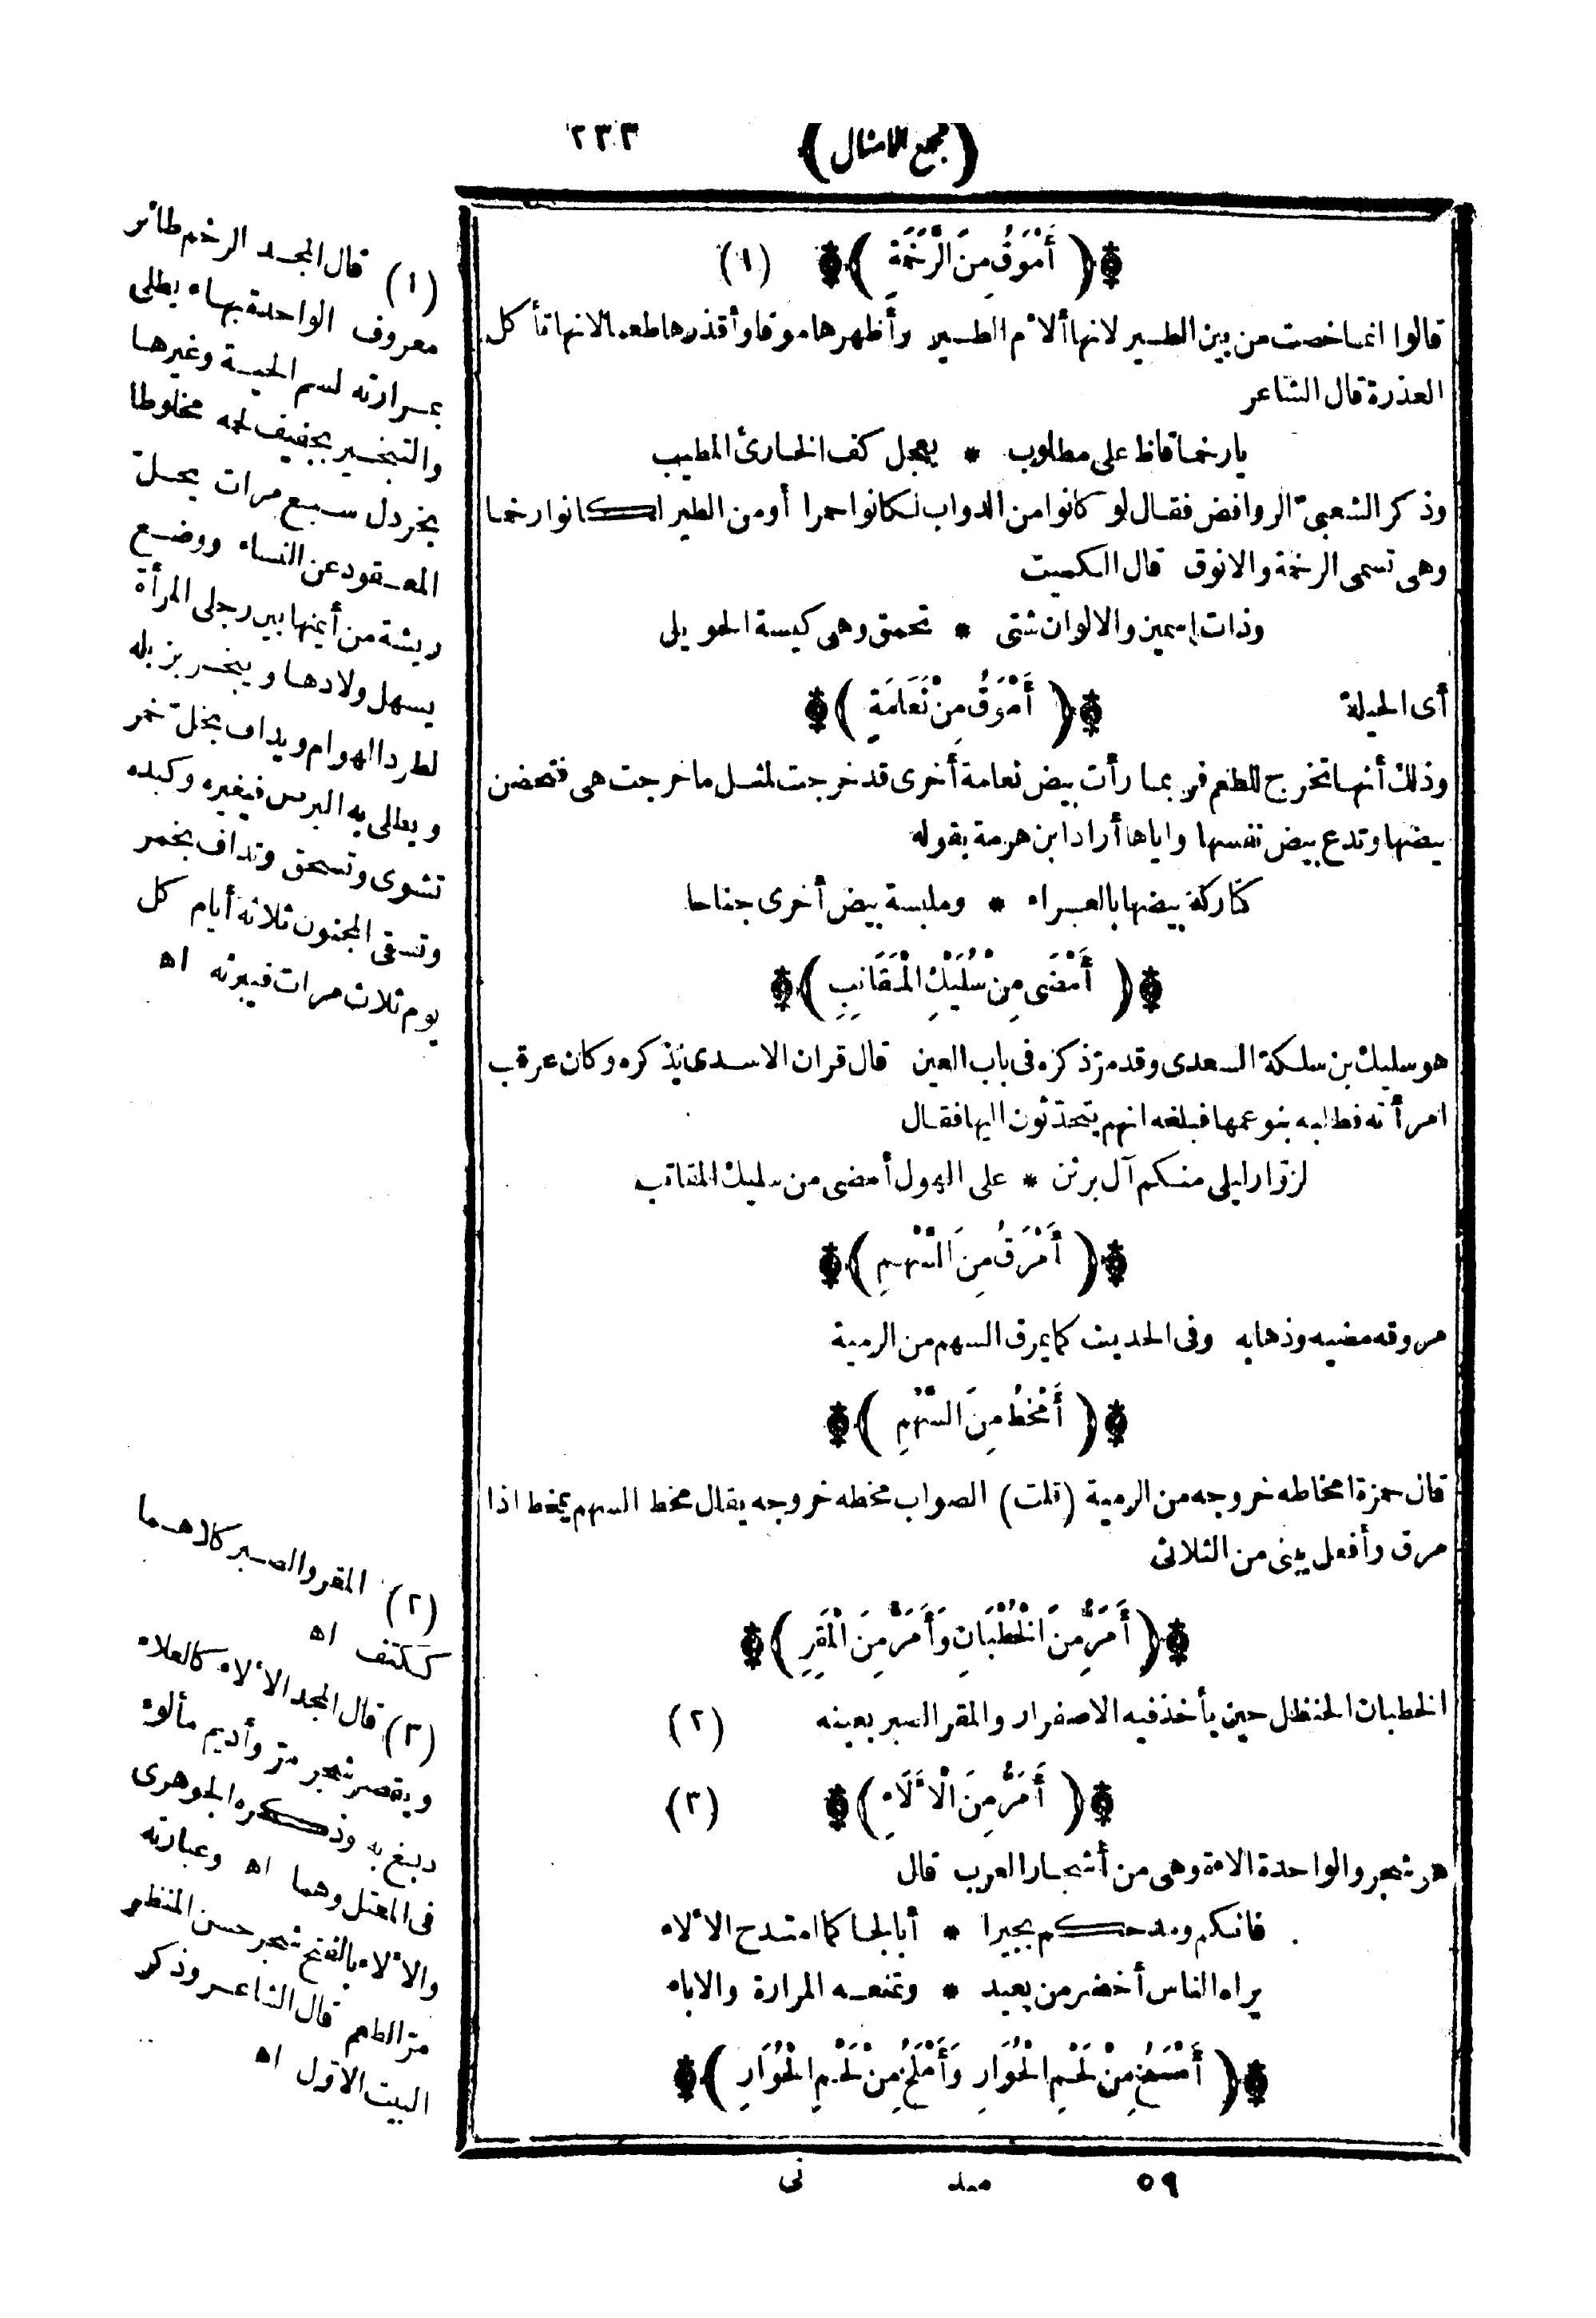 (مجمع الامثال) ٢٣٣
(أَمْوَقُ مِنَ الرَّخَمَةِ) (١)
قالوا انما خصت من بين الطير لانها ألأم الطير وأظهرها موقا وأقذرها طعما لانها تأكل
العذرة قال الشاعر
يا رخما قاظ على مطلوب * يعجل كف الخارئ المطيب
وذكر الشعبىّ الروافض فقال لو كانوا من الدواب لكانوا حمرا أو من الطير لكانوا رخما
وهى تسمى الرخمة والانوق قال الكميت
وذات اسمين والالوان شتى * تحمق وهى كيسة الحويل
أى الحيلة (أَمْوَقُ مِنْ نَعَامَةٍ)
وذلك أنها تخرج للطعم فربما رأت بيض نعامة أخرى قد خرجت لمثل ما خرجت هى فتحضن
بيضها وتدع بيض نفسها واياها أراد ابن هرمة بقوله
كتاركة بيضها بالعراء * وملبسة بيض أخرى جناحا
(أَمْضَى مِنْ سُلَيْكِ الْمَقَانِبِ)
هو سليك بن سلكة السعدى وقد مرّ ذكره فى باب العين قال قران الاسدى يذكره وكان عرقب
امرأته فطلبه بنو عمها فبلغه انهم يتحدّثون اليها فقال
لزوّار ليلى منكم آل برثن * على الهول أمضى من سليك المقانب
(أَمْرَقُ مِنَ السَّهْمِ)
مروقه مضيه وذهابه وفى الحديث كما يمرق السهم من الرمية
(أَمْخَطُ مِنَ السَّهْمِ)
قال حمزة امخاطه خروجه من الرمية (قلت) الصواب مخطه خروجه يقال مخط السهم يمخط اذا
مرق وأفعل يبنى من الثلاثى
(أَمَرُّ مِنَ الْخُطْبَانِ وَأَمَرُّ مِنَ الْمَقِرِ)
الخطبان الحنظل حين يأخذ فيه الاصفرار والمقر الصبر بعينه (٢)
(أَمَرُّ مِنَ الْأَلَاءِ) (٣)
هو شجر والواحدة الاءة وهى من أشجار العرب قال
فانكم ومدحكم بجيرا * أبا لجا كما امتدح الألاء
يراه الناس أخضر من بعيد * وتمنعه المرارة والاباء
(أَمْسَخُ مِنْ لَحْمِ الْحُوَارِ وَأَمْلَخُ مِنْ لَحْمِ الْحُوَارِ)
٥٩ ميد نى
(١) قال المجد الرخم طائر
معروف الواحدة بهاء يطلى
بمرارته لسم الحية وغيرها
والتبخير بجفيف لحمه مخلوطا
بخردل سبع مرات يحلّ
المعقود عن النساء ووضع
ريشة من أيمنها بين رجلى المرأة
يسهل ولادها ويبخر بزبله
لطرد الهوام ويداف بخلّ خمر
ويطلى به البرص فيغيره وكبده
تشوى وتسحق وتداف بخمر
وتسقى المجنون ثلاثة أيام كل
يوم ثلاث مرات فيبرئه اه
(٢) المقر والصبر كلاهما
ككتف اه
(٣) قال المجد الألاء كالعلاء
ويقصر شجر مرّ وأديم مألوء
دبغ به وذكره الجوهرى
فى المعتل وهما اه وعبارته
والألاء بالفتح شجر حسن المنظر
مرّ الطعم قال الشاعر وذكر
البيت الاوّل اه